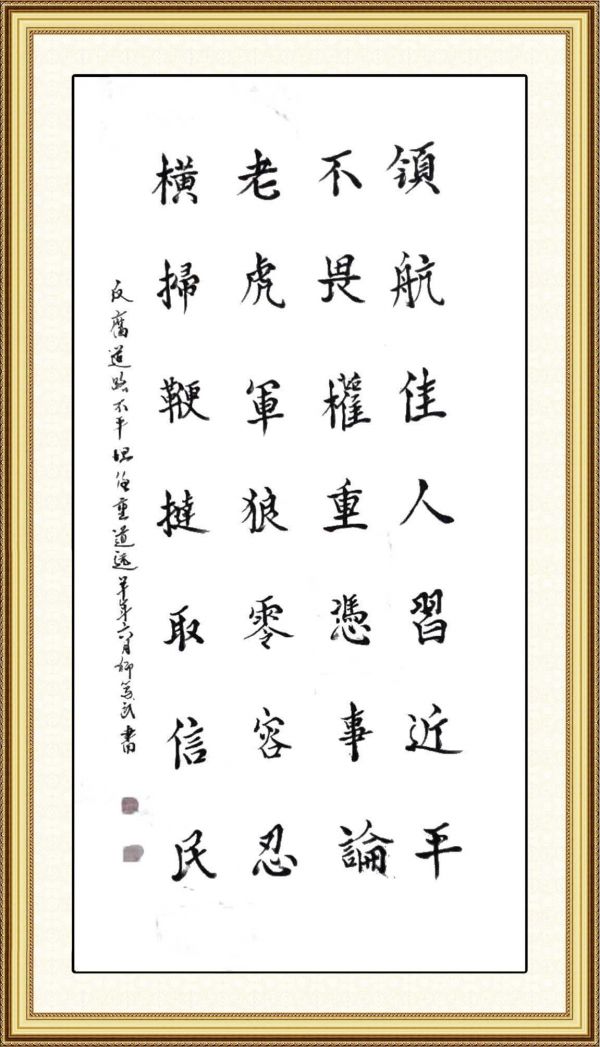 領航佳人習近平
不畏權重憑事論
老虎軍狼零容忍
橫掃鞭撻取信民
反腐道路不平坦任重道遠羊年六月柳書